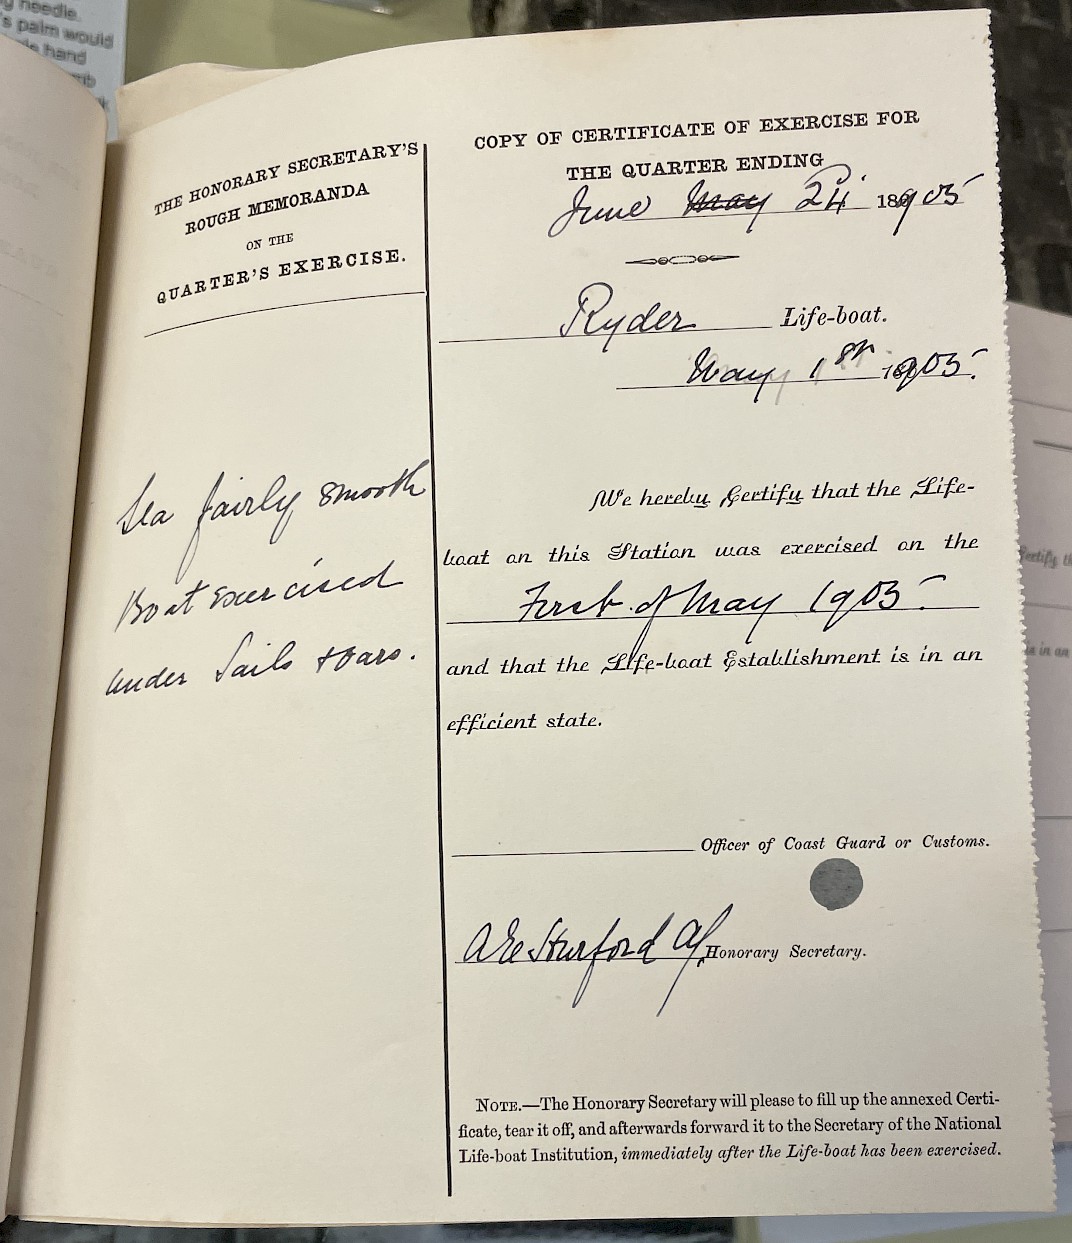 needle.
's palm would
hand
THE HONORARY SECRETARY'S
ROUGH MEMORANDA
ON THE
QUARTER'S EXERCISE.
Sea fairly smooth
Boat exercised
under Sails & oars.
COPY OF CERTIFICATE OF EXERCISE FOR
THE QUARTER ENDING
June May 24 1905
Ryder Life-boat.
May 1st 1905.
We hereby Certify that the Life-
boat on this Station was exercised on the
First of May 1905.
and that the Life-boat Establishment is in an
efficient state.
Officer of Coast Guard or Customs.
Honorary Secretary.
NOTE.—The Honorary Secretary will please to fill up the annexed Certi-
ficate, tear it off, and afterwards forward it to the Secretary of the National
Life-boat Institution, immediately after the Life-boat has been exercised.